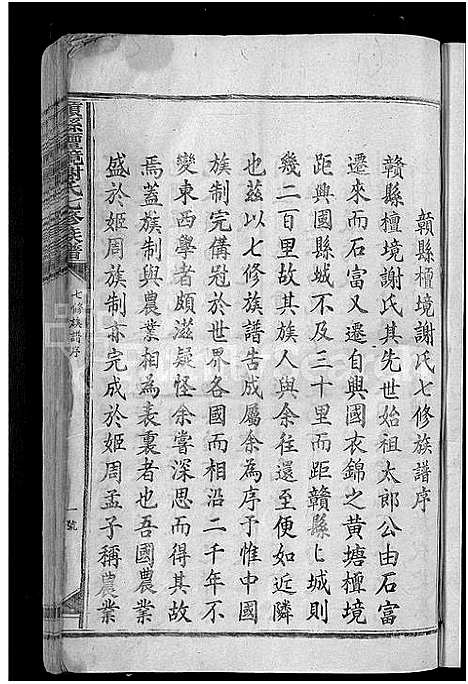 贛縣檀境謝氏七修族譜序
贛縣檀境謝氏其先世始祖太郎公由石富
遷來而石富又遷自興國衣錦之黃塘檀境
距興國縣城不及三十里而距贛縣匕城則
幾二百里故其族人與余往還至便如近隣
也茲以七修族譜告成屬余為序予惟中國
族制完備冠於世界各國而相沿二千年不
變東西學者頗滋疑怪余嘗深思而得其故
焉蓋族制與農業相為表裏者也吾國農業
盛於姬周族制亦完成於姬周孟子稱農業
贛縣檀境謝氏七修族譜
七修族譜序
一號